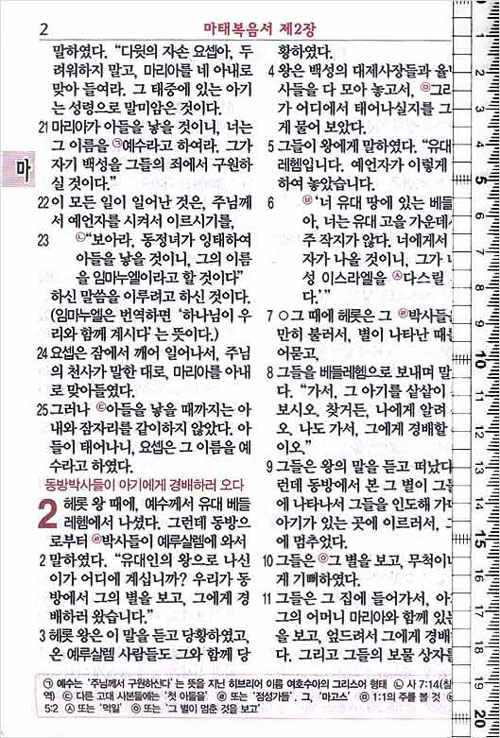 2
마태복음서 제2장
말하였다. “다윗의 자손 요셉아, 두
려워하지 말고, 마리아를 네 아내로
맞아 들여라. 그 태중에 있는 아기
는 성령으로 말미암은 것이다.
21 마리아가 아들을 낳을 것이니, 너는
그 이름을 ㉠예수라고 하여라. 그가
자기 백성을 그들의 죄에서 구원하
실 것이다.”
22 이 모든 일이 일어난 것은, 주님께
서 예언자를 시켜서 이르시기를,
23 ㉡“보아라, 동정녀가 잉태하여
아들을 낳을 것이니, 그의 이름
을 임마누엘이라고 할 것이다”
하신 말씀을 이루려고 하신 것이다.
(임마누엘은 번역하면 ‘하나님이 우
리와 함께 계시다’는 뜻이다.)
24 요셉은 잠에서 깨어 일어나서, 주님
의 천사가 말한 대로, 마리아를 아내
로 맞아들였다.
25 그러나 ㉢아들을 낳을 때까지는 아
내와 잠자리를 같이하지 않았다. 아
들이 태어나니, 요셉은 그 이름을 예
수라고 하였다.
동방박사들이 아기에게 경배하러 오다
2 헤롯 왕 때에, 예수께서 유대 베들
레헴에서 나셨다. 그런데 동방으
로부터 ㉣박사들이 예루살렘에 와서
2 말하였다. “유대인의 왕으로 나신
이가 어디에 계십니까? 우리가 동
방에서 그의 별을 보고, 그에게 경
배하러 왔습니다.”
3 헤롯 왕은 이 말을 듣고 당황하였고,
온 예루살렘 사람들도 그와 함께 당
황하였다.
4 왕은 백성의 대제사장들과 율
사들을 다 모아 놓고서, ㉤그리
가 어디에서 태어나실지를 그
게 물어 보았다.
5 그들이 왕에게 말하였다. “유대
레헴입니다. 예언자가 이렇게
하여 놓았습니다.
6 ㉥‘너 유대 땅에 있는 베들
아, 너는 유대 고을 가운데
주 작지가 않다. 너에게서
자가 나올 것이니, 그가
성 이스라엘을 ㉦다스릴
다.’”
7 ○그 때에 헤롯은 그 ㉣박사들
만히 불러서, 별이 나타난 때
어묻고,
8 그들을 베들레헴으로 보내며 말
다. “가서, 그 아기를 샅샅이
보시오. 찾거든, 나에게 알려
오. 나도 가서, 그에게 경배할
이오.”
9 그들은 왕의 말을 듣고 떠났다
런데 동방에서 본 그 별이 그들
에 나타나서 그들을 인도해 가
아기가 있는 곳에 이르러서, 그
에 멈추었다.
10 그들은 ㉧그 별을 보고, 무척이
게 기뻐하였다.
11 그들은 그 집에 들어가서, 아
그의 어머니 마리아와 함께 있는
을 보고, 엎드려서 그에게 경배
다. 그리고 그들의 보물 상자
마
㉠ 예수는 ‘주님께서 구원하신다’는 뜻을 지닌 히브리어 이름 여호수아의 그리스어 형태 ㉡ 사 7:14(칠
역) ㉢ 다른 고대 사본들에는 ‘첫 아들을’ ㉣ 또는 ‘점성가들’. 그, ‘마고스’ ㉤ 1:1의 주를 볼 것
5:2 ㉦ 또는 ‘먹일’ ㉧ 또는 ‘그 별이 멈춘 것을 보고’
5
10
15
20